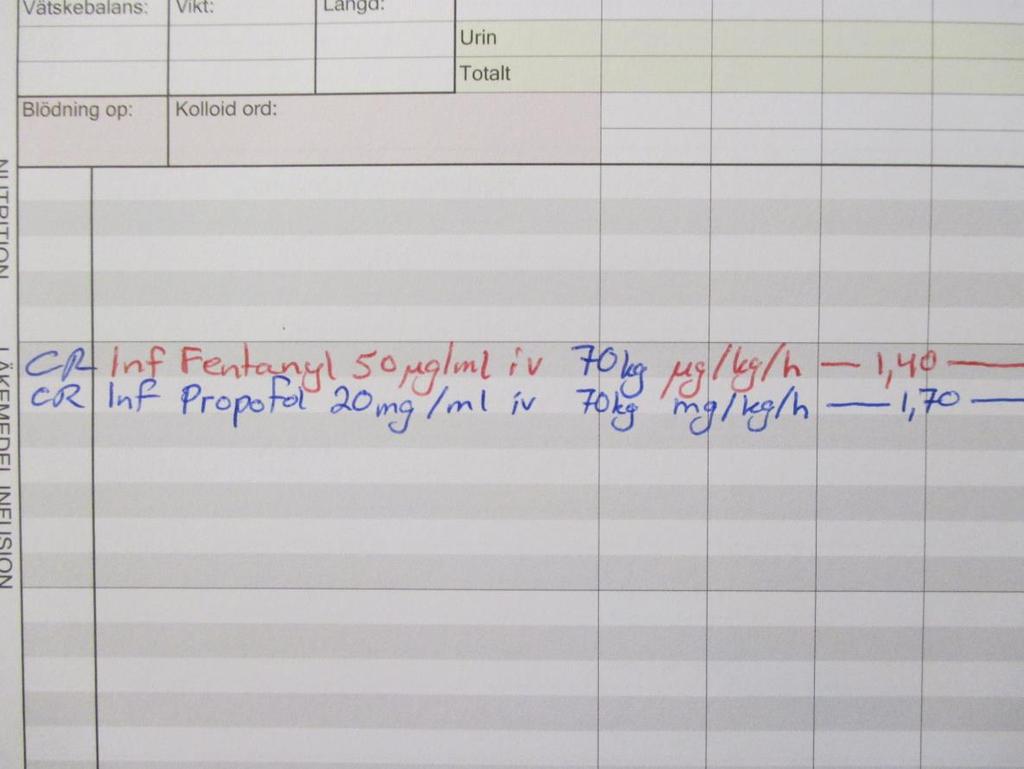 Vätskebalans: Vikt: Längd:
Urin
Totalt
Blödning op: Kolloid ord:
NUTRITION
LÄKEMEDEL INFUSION
CR Inf Fentanyl 50 µg/ml iv 70kg µg/kg/h — 1,40 —
CR Inf Propofol 20mg/ml iv 70kg mg/kg/h — 1,70 —